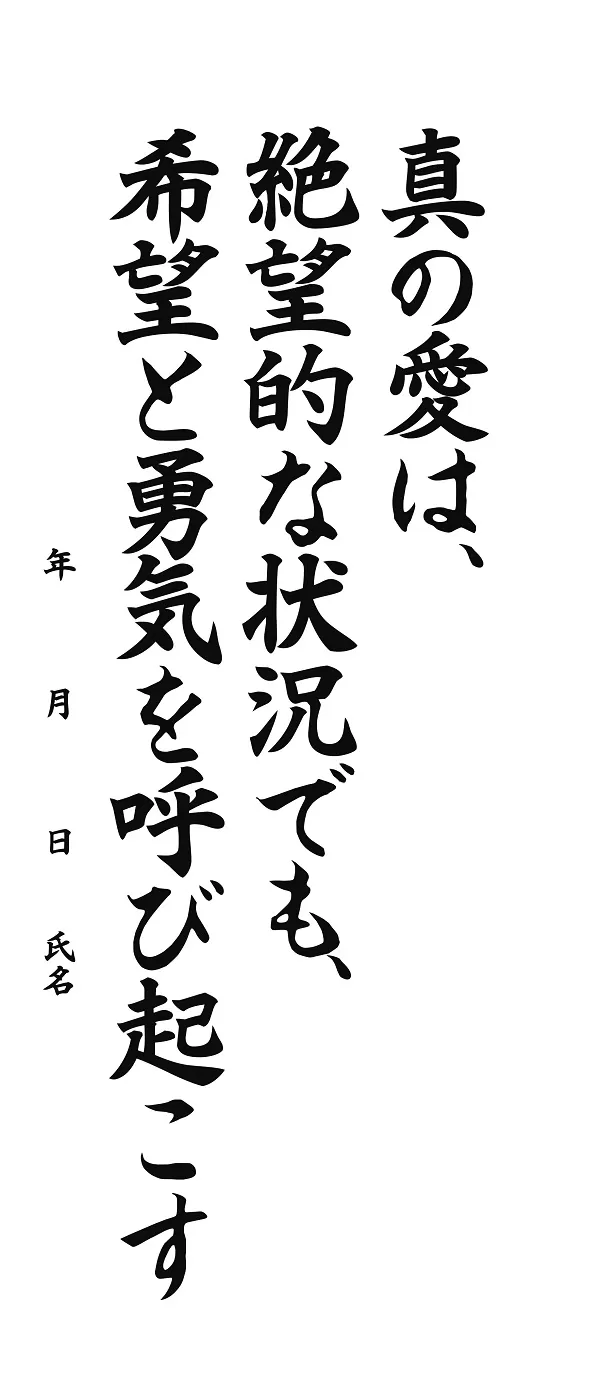 真の愛は、
絶望的な状況でも、
希望と勇気を呼び起こす
年 月 日 氏名